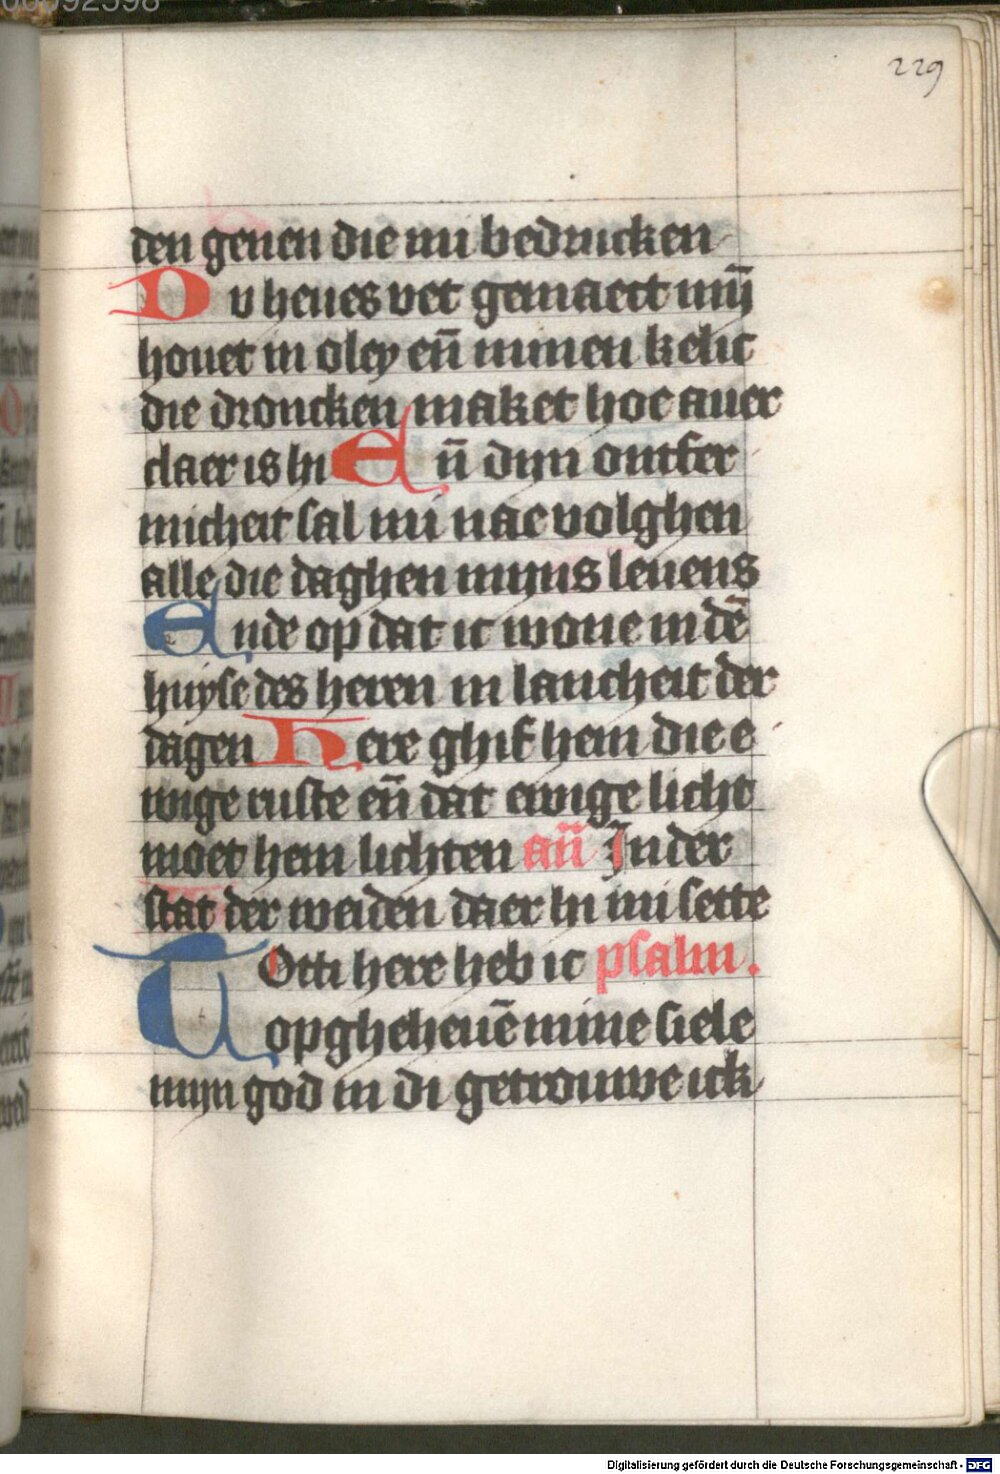 229
den genen die mi bedrucken
Du heues vet gemaect mÿ̄
houet in oley en̄ minen kelic
die droncken maket hoe auer
claer is hi En̄ dijn ontfer
micheit sal mi nae volghen
alle die daghen mijns leuens
Ende op dat ic wone in dē
huyse des heren in lancheit der
dagen Here ghif hem die e
wige ruste en̄ dat ewige licht
moet hem lichten an̄ In der
stat der weiden daer hi mi sette
Totti here heb ic psalm.
opgheheuē mine siele
mijn god in di getrouwe ick
Digitalisierung gefördert durch die Deutsche Forschungsgemeinschaft - DFG